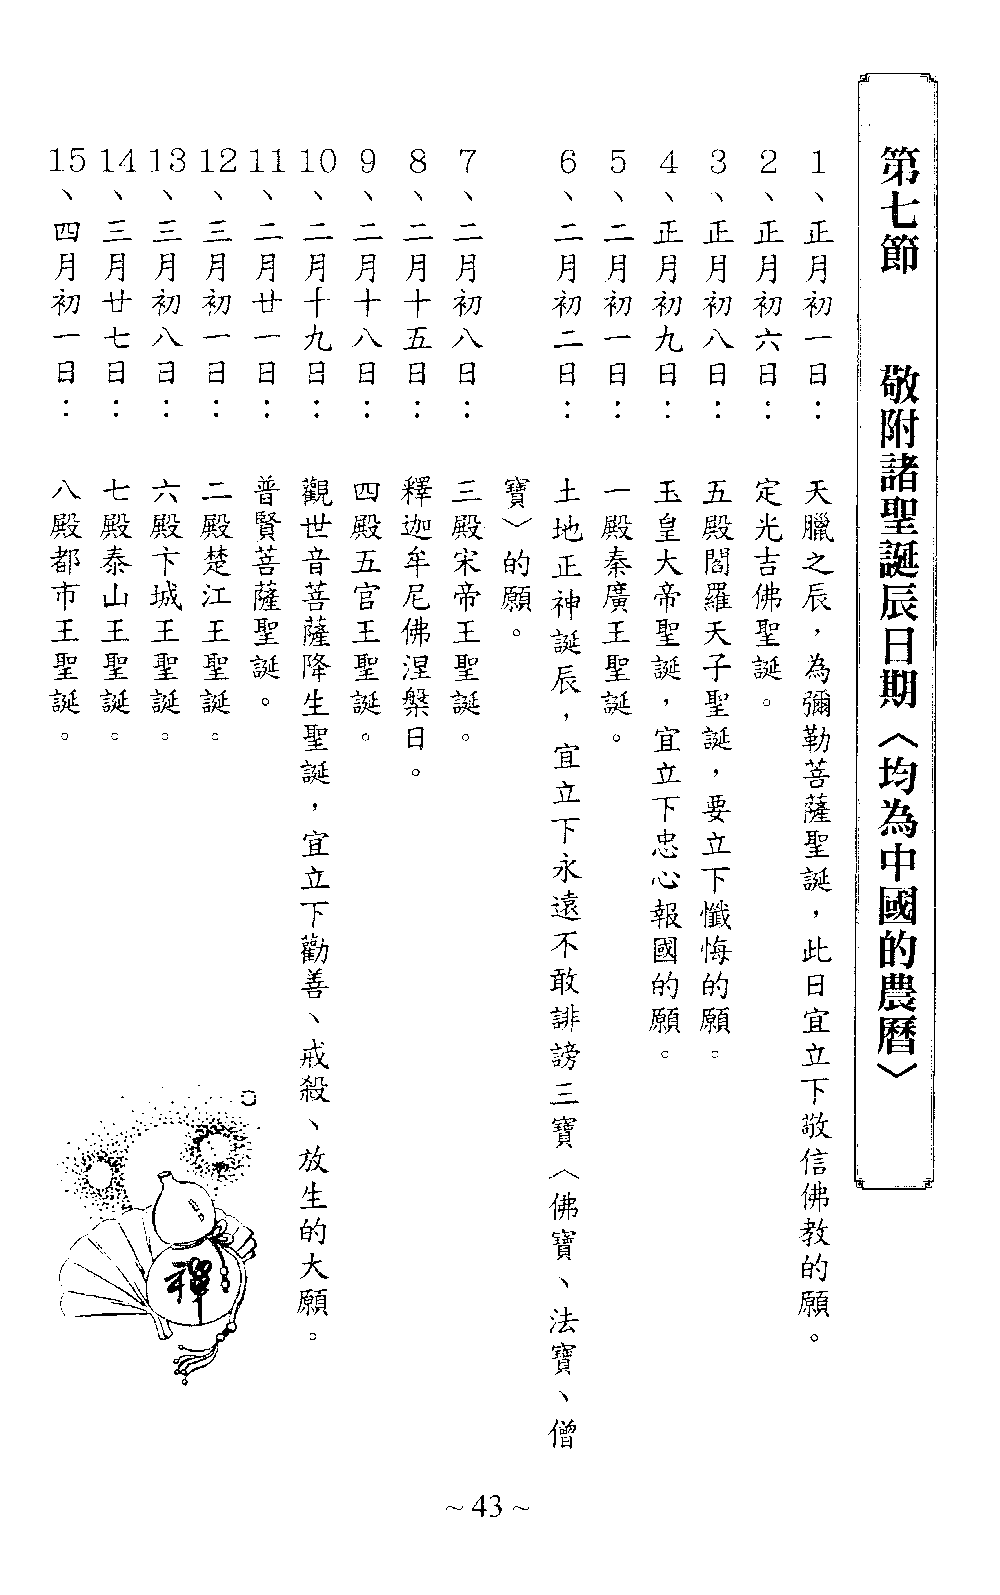 第七節　敬附諸聖誕辰日期〈均為中國的農曆〉
1、正月初一日：天臘之辰，為彌勒菩薩聖誕，此日宜立下敬信佛教的願。
2、正月初六日：定光吉佛聖誕。
3、正月初八日：五殿閻羅天子聖誕，要立下懺悔的願。
4、正月初九日：玉皇大帝聖誕，宜立下忠心報國的願。
5、二月初一日：一殿秦廣王聖誕。
6、二月初二日：土地正神誕辰，宜立下永遠不敢誹謗三寶〈佛寶、法寶、僧
寶〉的願。
7、二月初八日：三殿宋帝王聖誕。
8、二月十五日：釋迦牟尼佛涅槃日。
9、二月十八日：四殿五官王聖誕。
10、二月十九日：觀世音菩薩降生聖誕，宜立下勸善、戒殺、放生的大願。
11、二月廿一日：普賢菩薩聖誕。
12、三月初一日：二殿楚江王聖誕。
13、三月初八日：六殿卞城王聖誕。
14、三月廿七日：七殿泰山王聖誕。
15、四月初一日：八殿都市王聖誕。
禪
~ 43 ~